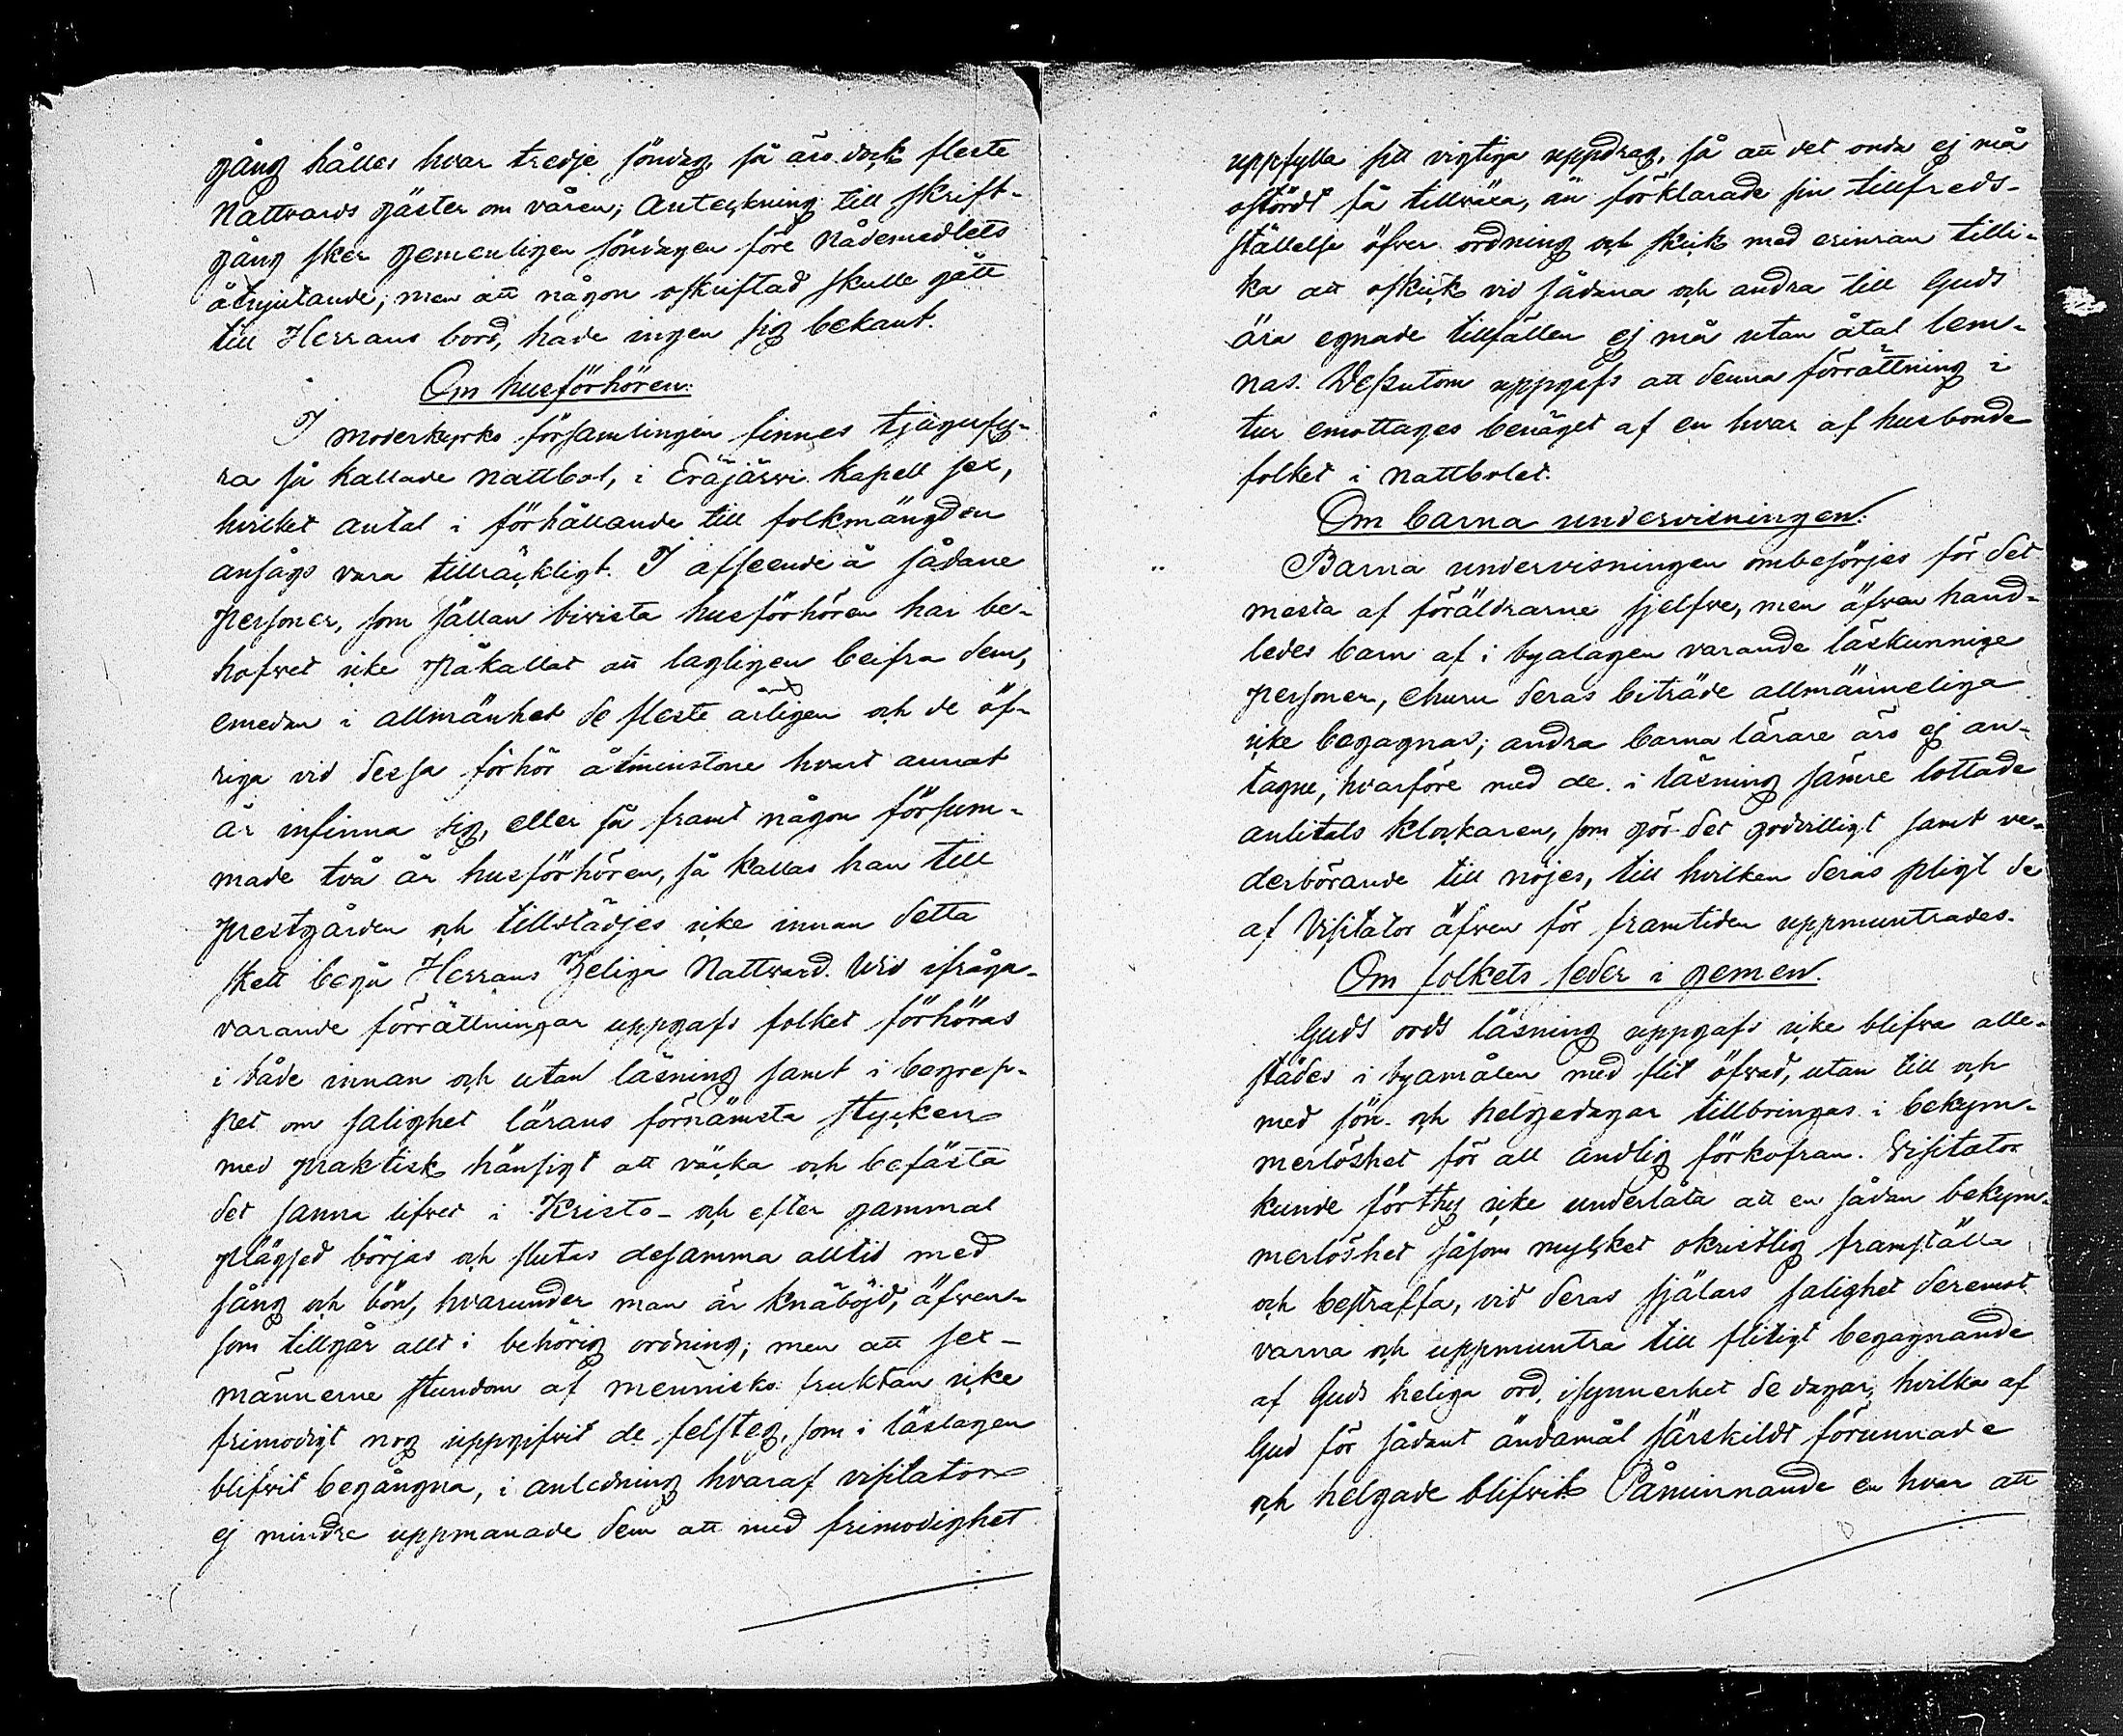 gång hålles hvar tredje söndag, så äro dock fleste
Nattvards gäster om våren; Anteckning till skrift-
gång sker gemenligen söndagen före Nådemedlets
åtnjutande; men att någon oskriftad skulle gått
till Herrans bord, hade ingen sig bekant.
Om husförhören:
I moderkyrko församlingen finnes tjugufy-
ra så kallade nattbol, i Eräjärwi kapell sex,
hvilket antal i förhållande till folkmängden
ansågs vara tillräckligt. I afseende å sådane
personer, som sällan bivista husförhören har be-
hofvet icke påkallat att lagligen beifra dem,
emedan i allmänhet de fleste årligen och de öf-
riga vid dessa förhör åtminstone hvart annat
år infinna sig, eller så framt någon försum-
made två år husförhören, så kallas han till
prestgården och tillstädjes icke innan detta
skett begå Herrans Heliga Nattvard. Wid ifråga-
varande förrättningar uppgafs folket förhöras
i både innan och utan läsning samt i begrep-
pet om salighet lärans förnämsta stycken
med praktisk hänsigt att väcka och befästa
det sanna lifvet i Kristo - och efter gammal
plägsed börjas och slutas desamma alltid med
sång och bön, hvarunder man är knäböjd, äfven-
som tillgår allt i behörig ordning; men att sex-
männerne stundom af mennisko fruktan icke
frimodigt nog uppgifvit de felsteg, som i läslagen
blifvit begångna, i anledning hvaraf visitator
ej mindre uppmanade dem att med frimodighet
uppfylla sitt vigtiga uppdrag, så att det onda ej må
ostördt få tillväxa, än förklarade sin tillfreds-
ställelse öfver ordning och skick med erinran tilli-
ka att oskick vid sådana och andra till Guds
ära egnade tillfällen ej må utan åtal lem-
nas. Dessutom uppgafs att denna förrättning i
tur emottages benäget af en hvar af husbonde
folket i nattbolet.
Om barna undervisningen.
Barna undervisningen ombesörjes för det
mesta af föräldrarne sjelfve, men äfven hand-
ledes barn af i byalagen varande läskunnige
personer, ehuru deras biträde allmänneliga
icke begagnas; andra barna lärare äro ej an-
tagne, hvarföre med de i läsning sämre lottade
anlitals klockaren, som gör det godvilligt samt ve-
derbörande till nöjes, till hvilken deras pligt de
af Visitator äfven för framtiden uppmuntrades.
Om folkets seder i gemen.
Guds ords läsning uppgafs icke blifva alle-
städes i byamålen med flit öfvad, utan till och
med sön- och helgedagar tillbringas i bekym-
merlöshet för all andlig förkofran. Visitator
kunde förthy icke underlåta att en sådan bekym-
merlöshet såsom mycket okristlig framställa
och bestraffa, vid deras själars salighet deremot
varna och uppmuntra till flitigt begagnande
af Guds heliga ord, isynnerhet de dagar, hvilka af
Gud för sådant ändamål särskildt förunnade
och helgade blifvit. Påminnande en hvar att